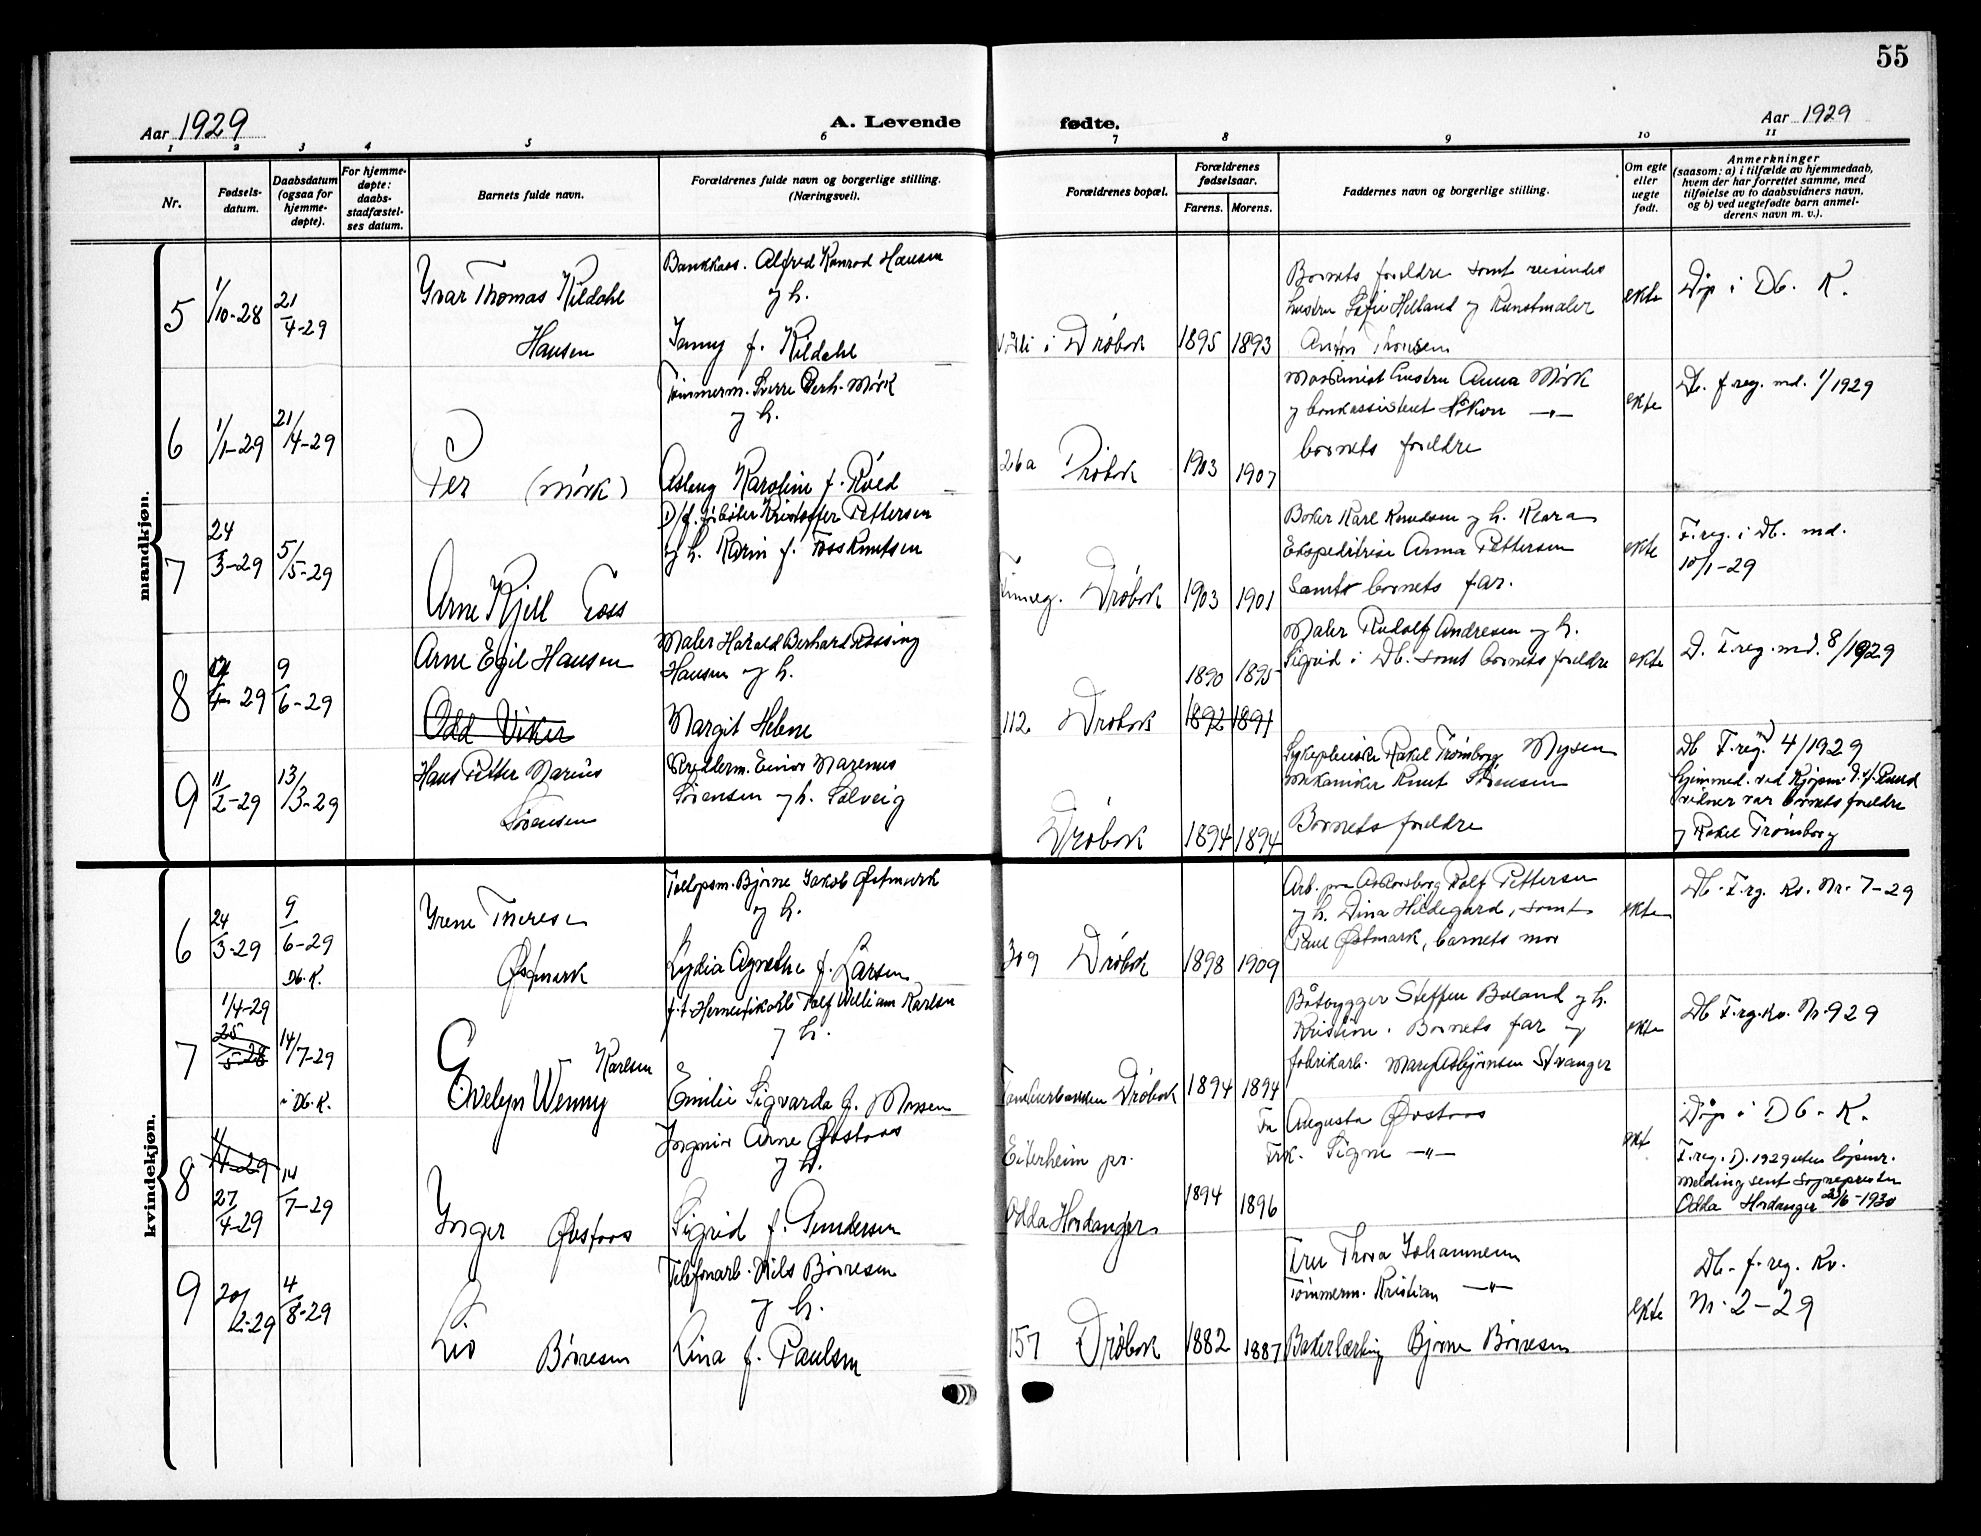 55
Aar 1929
A. Levende fødte.
Aar 1929
1 2 3 4 5 6 7 8 9 10 11
Nr.
Fødsels-
datum.
Daabsdatum
(ogsaa for
hjemme-
døpte).
For hjemme-
døpte:
daabs-
stadfæstel-
ses datum.
Barnets fulde navn.
Forældrenes fulde navn og borgerlige stilling.
(Næringsvei).
Forældrenes bopæl.
Forældrenes
fødselsaar.
Farens. Morens.
Faddernes navn og borgerlige stilling.
Om egte
eller
uegte
født.
Anmerkninger
(saasom: a) i tilfælde av hjemmedaab,
hvem der har forrettet samme, med
tilføielse av to daabsvidners navn,
og b) ved uegtefødte barn anmel-
derens navn m. v.).
mandkjøn.
5 1/10-28 21/4-29
Yvar Thomas Kildahl
Hansen
Bankkass. Alfred Konrad Hansen
og h.
Jenny f. Kildahl
i Drøbak 1895 1893
Barnets foreldre samt reisendes
hustru Sofie Helland og Kunstmaler
Anton Thoresen
ekte
Døp i Db. K.
6 1/1-29 21/4-29
Per (Mørk)
Tømmerm. Sverre Berh. Mørk
og h.
Aslaug Karoline f. Roed
26a Drøbak 1903 1907
Maskinist hustru Anna Mörk
og bankassistent Håkon —"—
barnets foreldre
ekte
Db. f. reg. md. 1/1929
7 24/3-29 5/5-29
Arne Kjell Foss
D/f. fyrbøter Kristoffer Pettersen
og h. Karin f. Foss Knutsen
Drøbak 1903 1901
Baker Karl Knudsen og h. Klara
Ekspeditrise Anna Pettersen
samt barnets far.
ekte
F. reg. i Db. md.
10/1-29
8 4-29 9/6-29
Arne Egil Hansen
Odd Viker
Maler Harald Berhard Rossing
Hansen og h.
Margit Helene
112 Drøbak 1890 1895
1892 1891
Maler Rudolf Andresen og h.
Sigrid i Db. samt barnets foreldre
ekte
D. F. reg. md. 8/1929
9 11/2-29 13/3-29
Hans Petter Marius
Sørensen
Skredderm. Einar Marenus
Sørensen og h. Solveig
Drøbak 1894 1894
Sykepleierske Rakel Trømborg Mysen
Mekaniker Knut Sørensen
Barnets foreldre
Db F. reg. 4/1929
hjemmed. ved Kjøpm. J. f. Ruud
vidner var barnets foreldre
og Rakel Trømborg
kvindekjøn.
6 24/3-29 9/6-29
Db. K.
Yrene Therese
Østmark
Tollopsm. Bjarne Jakob Østmark
og h.
Lydia Agnethe f. Larsen
309 Drøbak 1898 1909
Arb. Rolf Pettersen
og h. Dina Hildegard, samt
Paul Østmark, barnets mor
ekte
Db. F. rg. Kv. Nr. 7-29
7 1/4-29
25/5-28 14/7-29
i Db. K.
Evelyn Wenny
Karlsen
f. t. Hermetikarb. Rolf William Karlsen
og h.
Emilie Sigvarda f. Monsen
Drøbak 1894 1894
Båtbygger Steffen Boland og h.
Kristine. Barnets far og
fabrikarb. Mary Asbjørnsen Stranger
ekte
Db F. rg. Kv. Nr. 929
8 11/4-29
27/4-29 14/7-29
Ynger Øvstaas
Ingmar Arne Øvstaas
og h.
Sigrid f. Gundersen
Eiterheim pr.
Odda Hardanger 1894 1896
Fru Augusta Øvstaas
Frk. Signe —"—
ekt
Døp i Db. K.
F. reg. D. 1929 uten løpenr.
Melding sent sognepresten
Odda Hardanger 23/6-1930
9 20/12-29 4/8-29
Liv Børresen
Telefonarb. Nils Børresen
og h.
Lina f. Paulsen
157 Drøbak 1882 1887
Fru Thora Johannesen
Tømmerm. Kristian —"—
Bakerlærling Bjarne Børresen
ekte
Db. f. reg. Kv.
Nr. 2-29